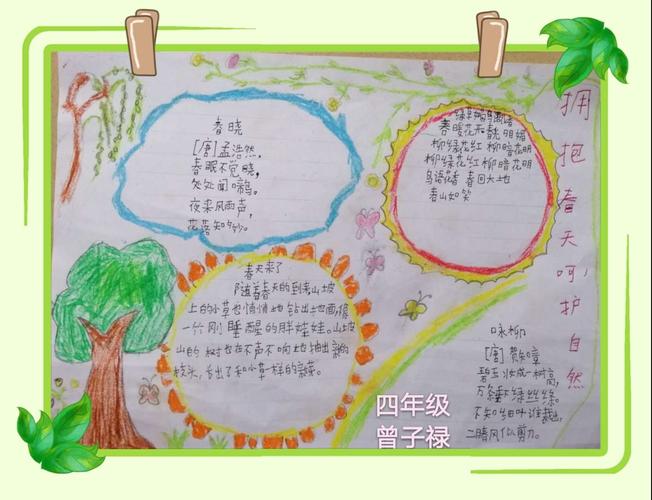 春晓
[唐]孟浩然,
春眠不觉晓,
处处闻啼鸟。
夜来风雨声,
花落知多少。
春暖花开 春光明媚
柳绿花红 柳暗花明
柳绿花红 柳暗花明
鸟语花香 春回大地
春山如笑
拥抱春天呵护自然
春天来了
随着春天的到来山坡
上的小草也悄悄地钻出地面像
一个刚睡醒的胖娃娃。山坡
山的树也在不声不响地抽出新的
枝头,长出了和小草一样的新芽。
咏柳
[唐]贺知章
碧玉妆成一树高,
万条垂下绿丝绦。
不知细叶谁裁出,
二月春风似剪刀。
四年级
曾子禄